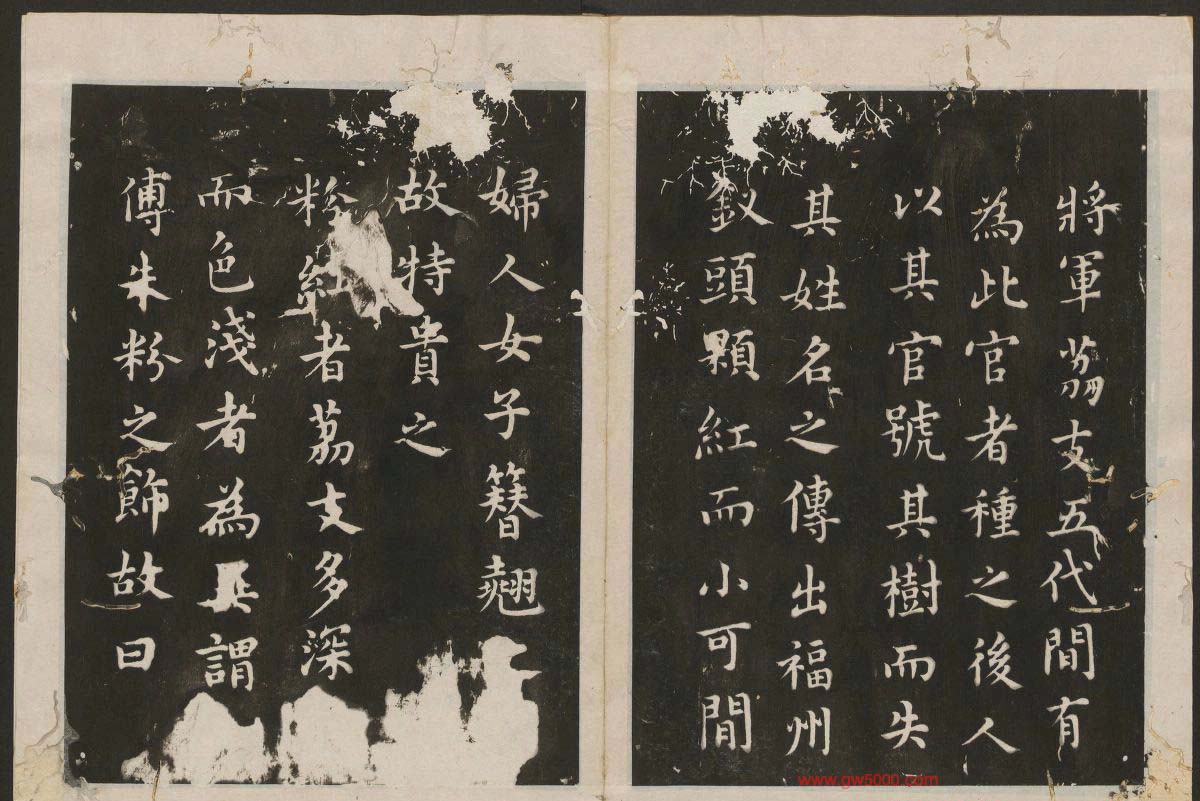 將軍荔支五代間有
為此官者種之後人
以其官號其樹而失
其姓名之傳出福州
釵頭顆紅而小可間
婦人女子簪翹
故特貴之
粉紅者荔支多深
而色淺者為異謂
傅朱粉之飾故曰
www.gw5000.com